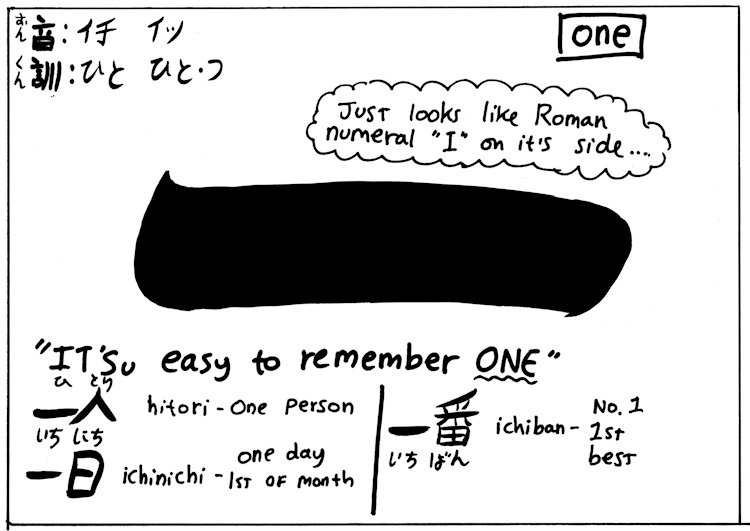 おん
音:イチ イツ
one
くん
訓:ひと ひと・つ
JUST looks like Roman
numeral "I" on it's side....
一
"IT'Su easy to remember ONE"
ひ とり
一人 hitori - One Person
いち にち
一日 ichinichi - one day
1ST OF month
一番 ichiban - No. 1
1st
best
いち ばん